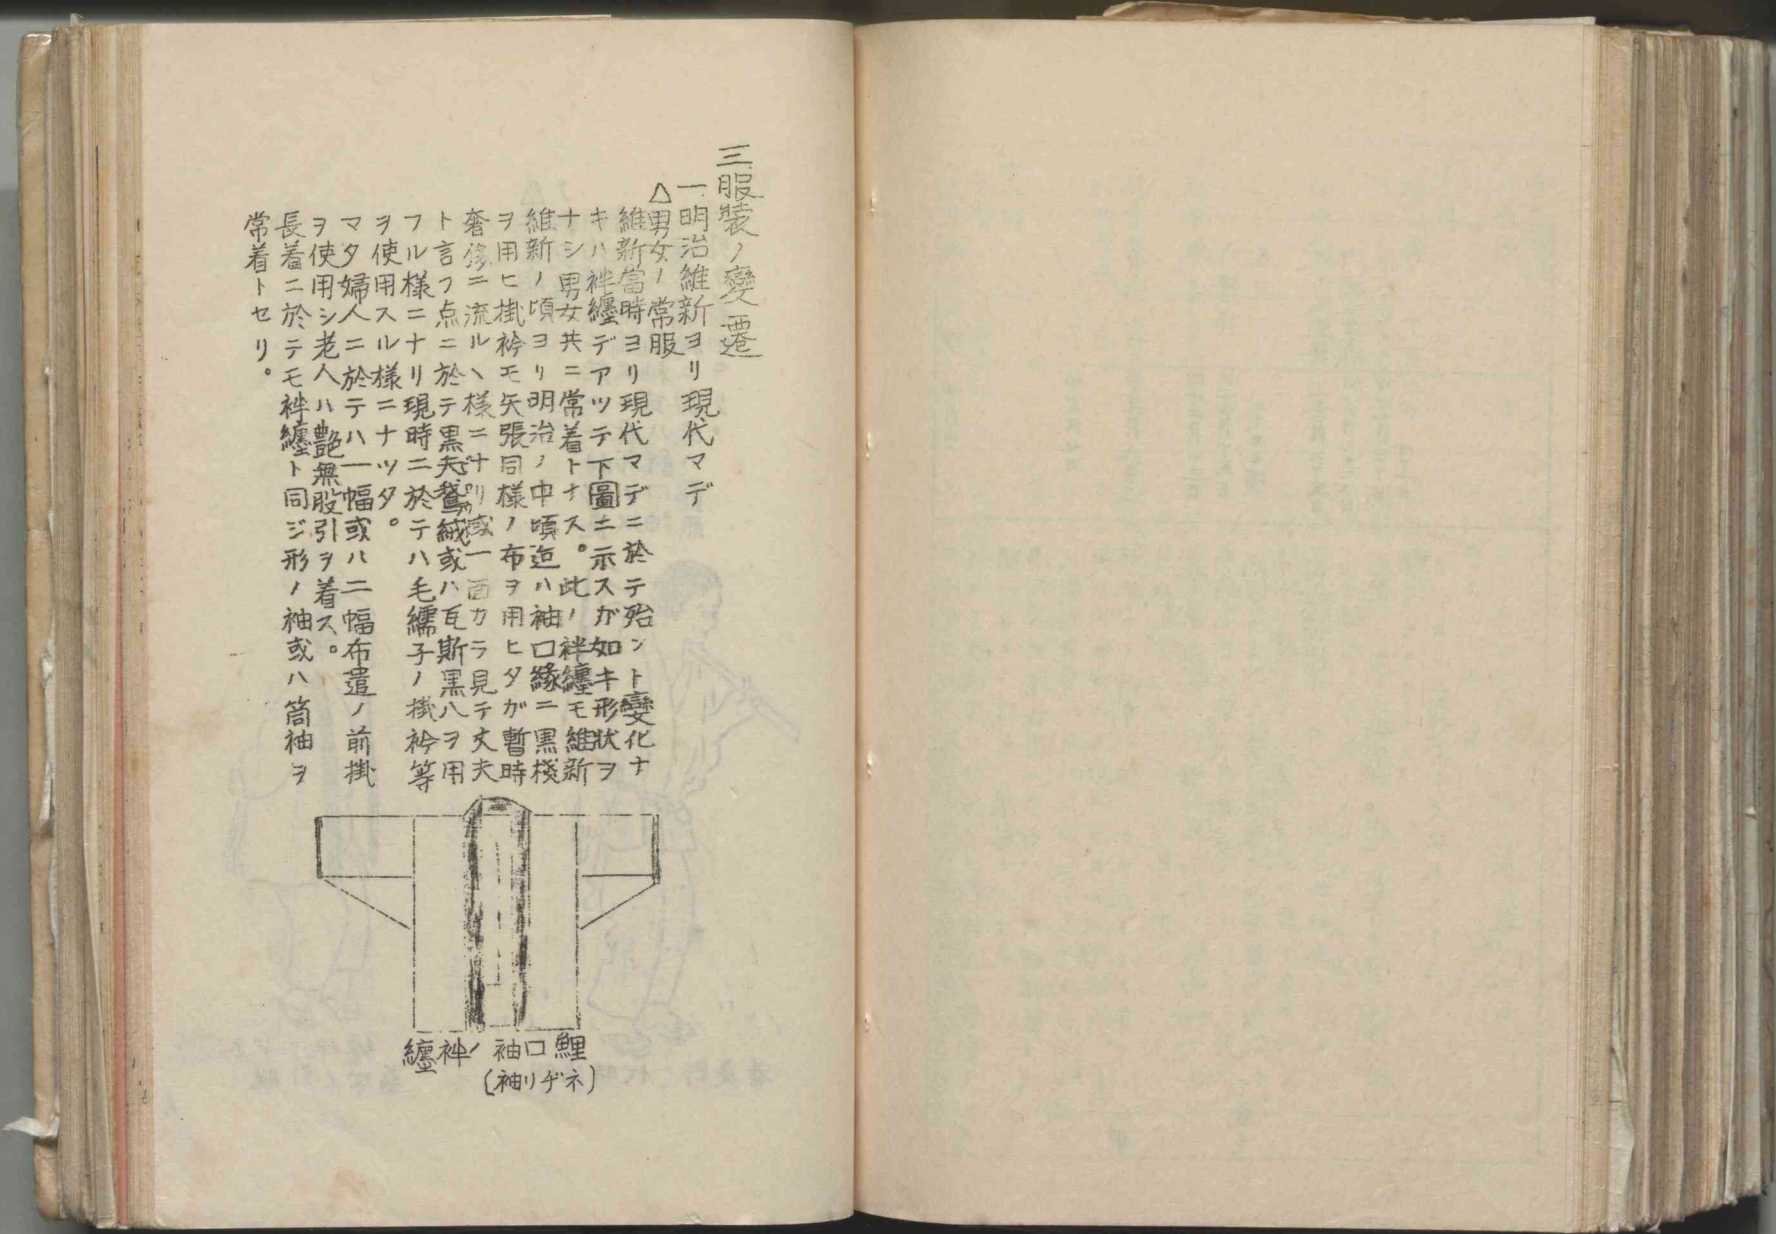 三.服装ノ變遷
一.明治維新ヨリ現代マデ
△男女ノ常服
維新當時ヨリ現代マデニ於テ殆ント變化ナ
キハ袢纏デアツテ下圖ニ示スガ如キ形状ヲ
ナシ男女共ニ常着トナス。此ノ袢纏モ維新
維新ノ頃ヨリ明治ノ中頃迄ハ袖口緣ニ黒棧
ヲ用ヒ掛衿モ矢張同様ノ布ヲ用ヒタガ暫時
奢侈ニ流ルヽ様ニナリ或一面カラ見テ丈夫
ト言フ点ニ於テ黒天鵞絨或ハ瓦斯黒八ヲ用
フル様ニナリ現時ニ於テハ毛繻子ノ掛衿等
ヲ使用スル様ニナツタ。
マタ婦人ニ於テハ一幅或ハ二幅布遣ノ前掛
ヲ使用シ老人ハ艶無股引ヲ着ス。
長着ニ於テモ袢纏ト同ジ形ノ袖或ハ筒袖ヲ
常着トセリ。
鯉口袖ノ袢纏
(ネヂリ袖)